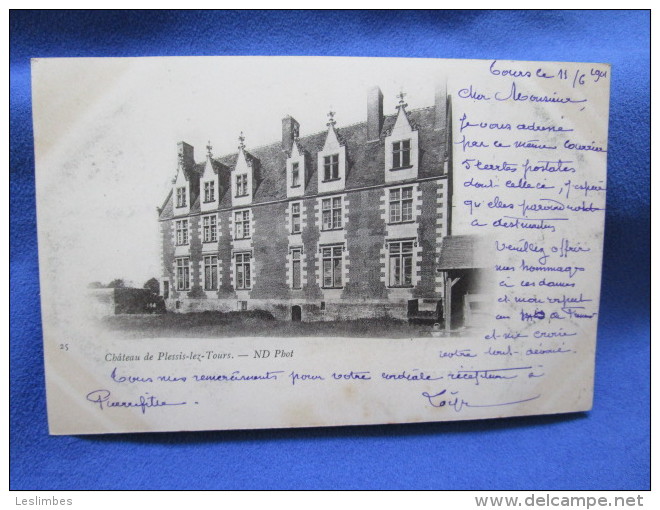 Tours le 11/6 1901
Cher Monsieur,
Je vous adresse
par ce même courrier
5 cartes postales
dont celle ci, j'espère
qu'elles parviendront
a destination
Veuillez offrir
mes hommages
à ces dames
et mon respect
au
et me croire
votre tout dévoué.
25
Château de Plessis-lez-Tours. — ND Phot
Tous mes remerciements pour votre cordiale réception à
Pierrefitte.
Leslimbes
www.delcampe.net